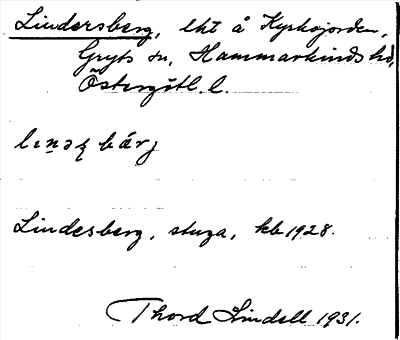 Lindersberg, lht å Kyrkojorden,
Gryts sn, Hammarkinds hd,
Östergötl. l.
Lindesberg, stuga, kb 1928.
Thord Lindell 1931.